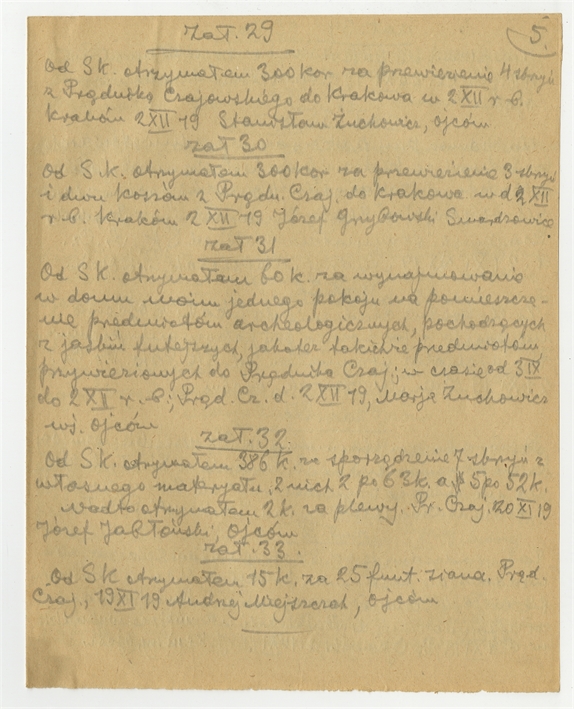 5.
Zał. 29
Od SK. otrzymałem 300 kor za przewiezienie 4 skrzyń
z Prądnika Czajowskiego do Krakowa w 2 XII r. b.
Kraków 2 XII 19 Stanisław Żuchowicz, Ojców
Zał 30
Od S.K. otrzymałem 300 kor za przewiezienie 3 skrzyń
i dwu koszów z Prądn. Czaj. do Krakowa w d 2 XII
r. b. Kraków 2 XII 19 Józef Grzybowski Smardzowice
Zał 31
Od SK. otrzymałam 60 k. za wynajmowanie
w domu moim jednego pokoju na pomieszcze-
nie przedmiotów archeologicznych, pochodzących
z jaskiń tutejszych, jakoteż takichże przedmiotów
przywiezionych do Prądnika Czaj; w czasie od 3 IX
do 2 XII r. b; Prąd. Cz. d. 2 XII 19, Marja Żuchowicz
wś. Ojców
Zał. 32.
Od SK. otrzymałem 386 k. za sporządzenie 7 skrzyń z
własnego materyału, z nich 2 po 63 k. a 5 po 52 k.
Nadto otrzymałem 2 k. za plewy. Pr. Czaj. 20 XI 19
Józef Jabłoński, Ojców
Zał. 33.
Od SK otrzymałem 15 k. za 25 funt. siana. Prąd.
Czaj., 19 XI 19 Andrzej Miejszczak, Ojców